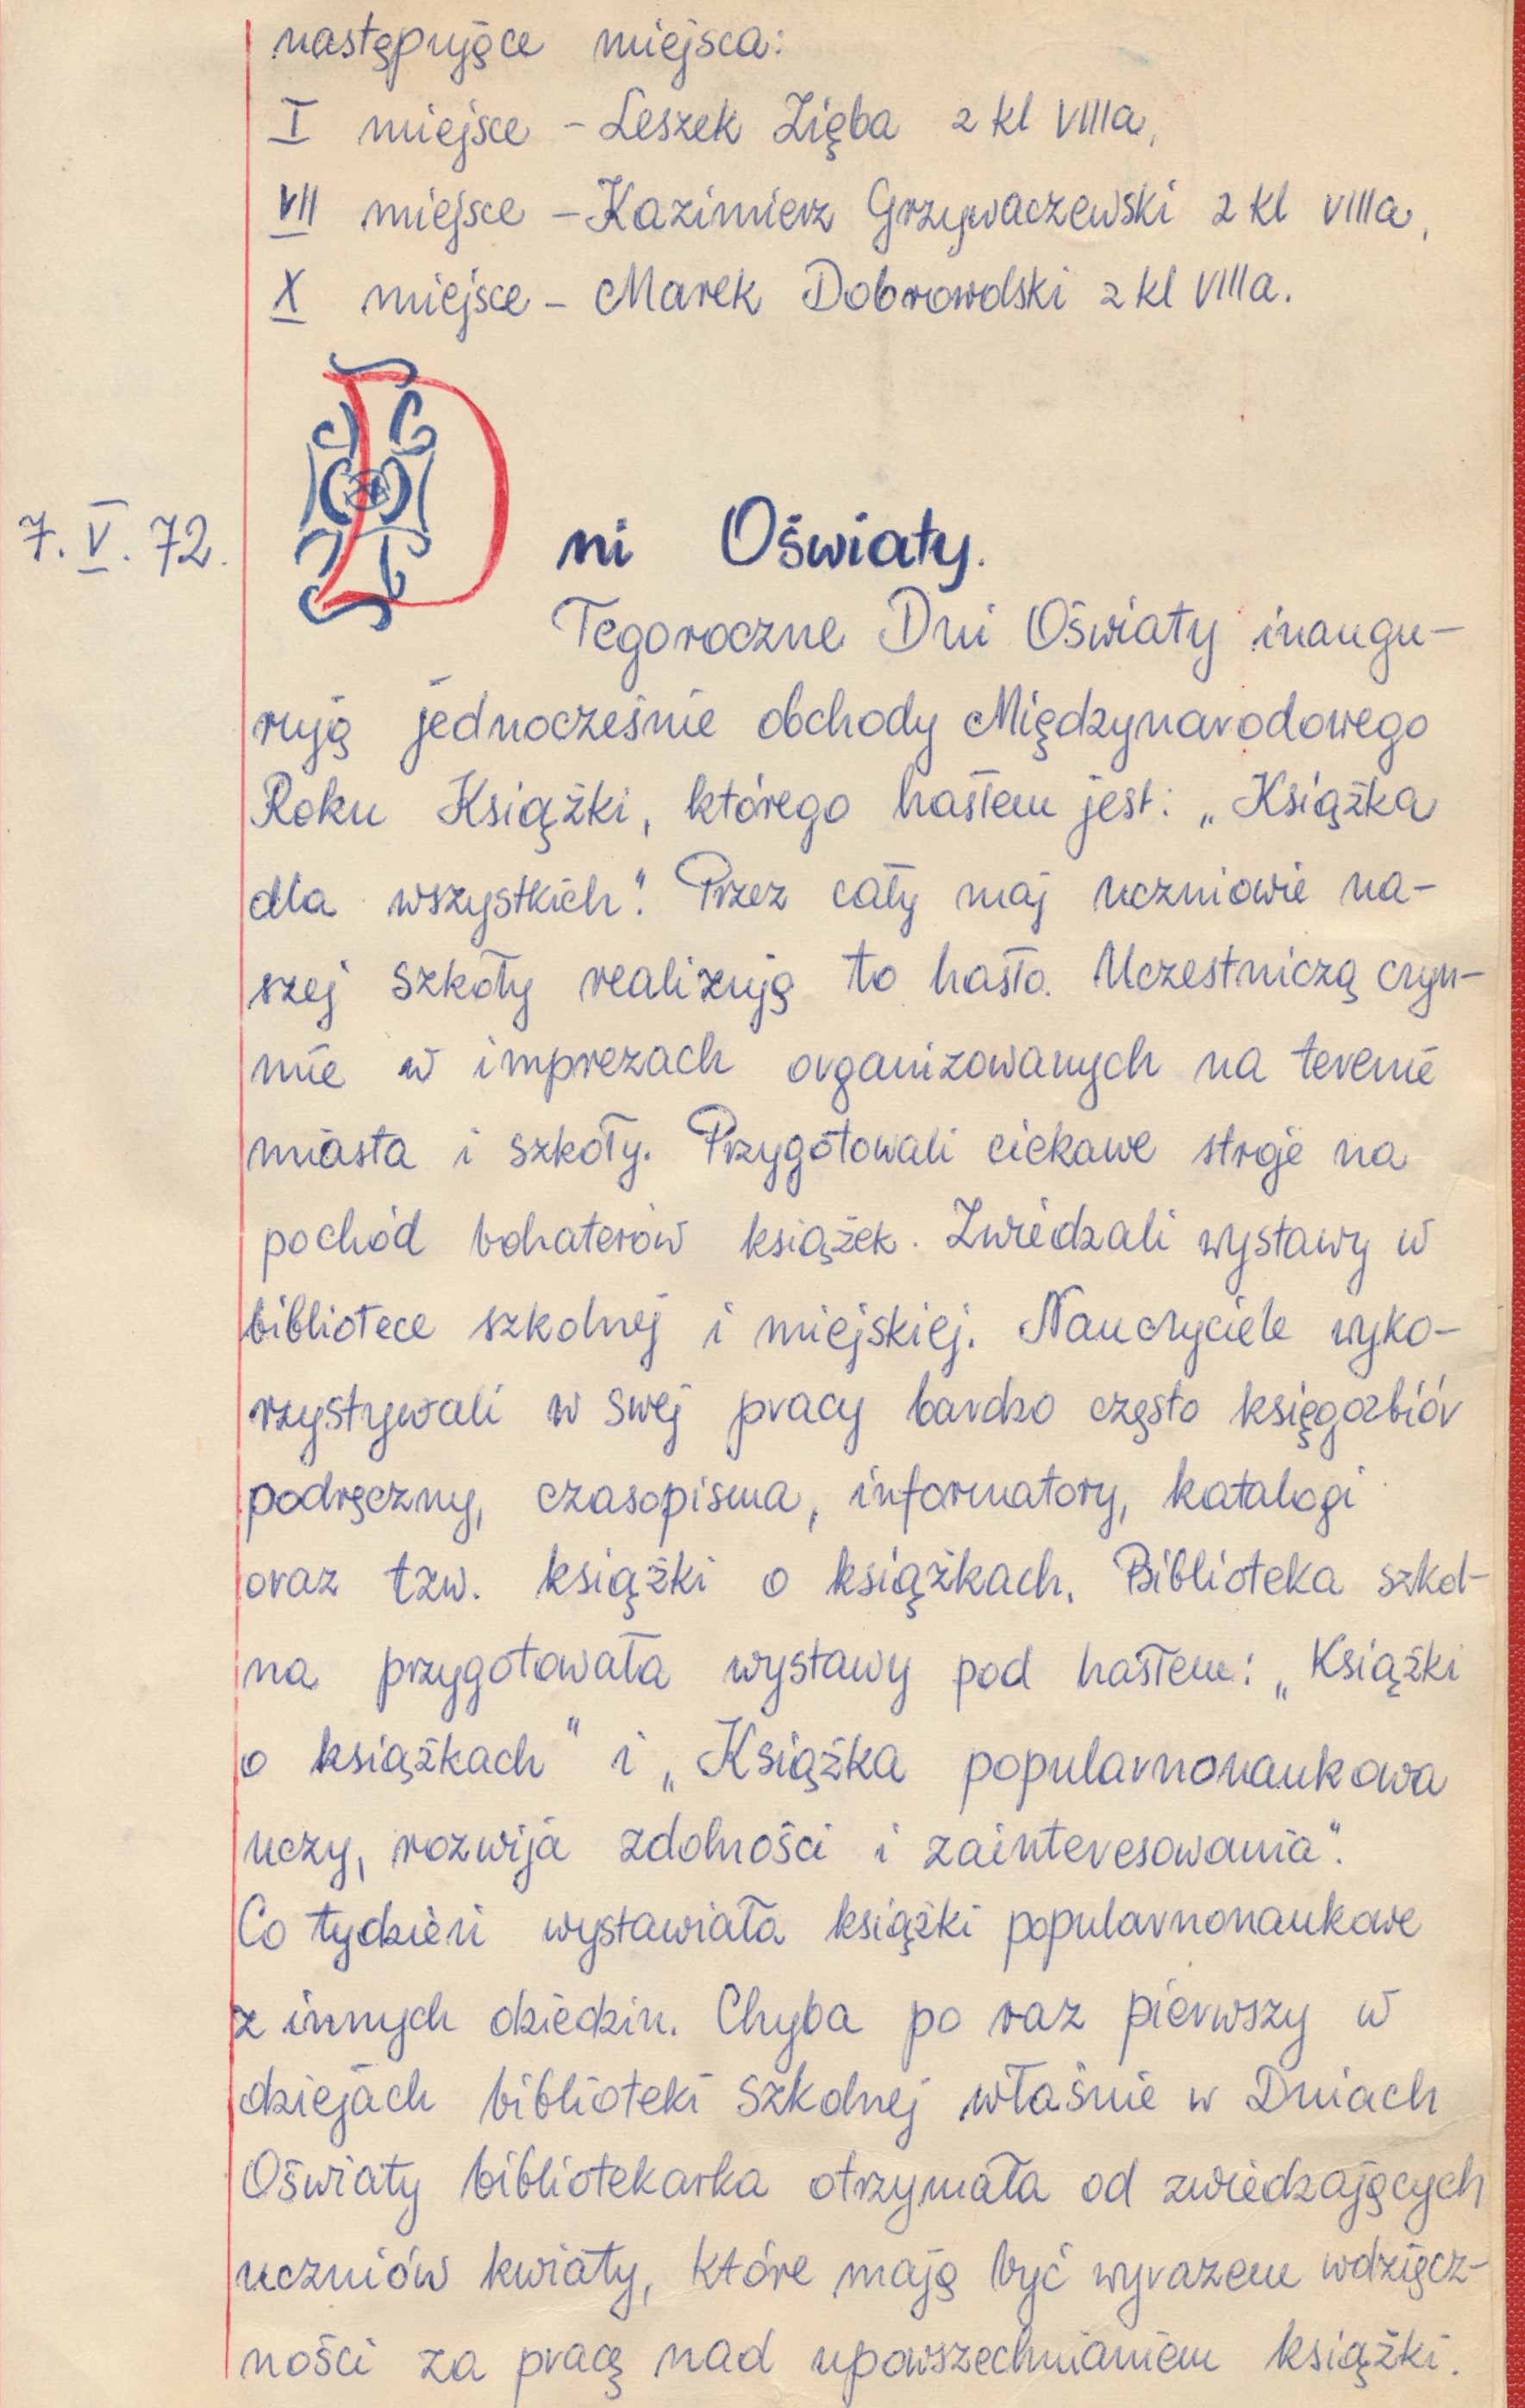 następujące miejsca:
I miejsce – Leszek Zięba z kl VIIIa,
VII miejsce – Kazimierz Grzywaczewski z kl VIIIa,
X miejsce – Marek Dobrowolski z kl VIIIa.
7. V. 72. Dni Oświaty.
Tegoroczne Dni Oświaty inaugu-
rują jednocześnie obchody Międzynarodowego
Roku Książki, którego hasłem jest: „Książka
dla wszystkich". Przez cały maj uczniowie na-
szej szkoły realizują to hasło. Uczestniczą czyn-
nie w imprezach organizowanych na terenie
miasta i szkoły. Przygotowali ciekawe stroje na
pochód bohaterów książek. Zwiedzali wystawy w
bibliotece szkolnej i miejskiej. Nauczyciele wyko-
rzystywali w swej pracy bardzo często księgozbiór
podręczny, czasopisma, informatory, katalogi
oraz tzw. książki o książkach. Biblioteka szkol-
na przygotowała wystawy pod hasłem: „Książki
o książkach" i „Książka popularnonaukowa
uczy, rozwija zdolności i zainteresowania".
Co tydzień wystawiała książki popularnonaukowe
z innych dziedzin. Chyba po raz pierwszy w
dziejach biblioteki szkolnej właśnie w Dniach
Oświaty bibliotekarka otrzymała od zwiedzających
uczniów kwiaty, które mają być wyrazem wdzięcz-
ności za pracę nad upowszechnianiem książki.